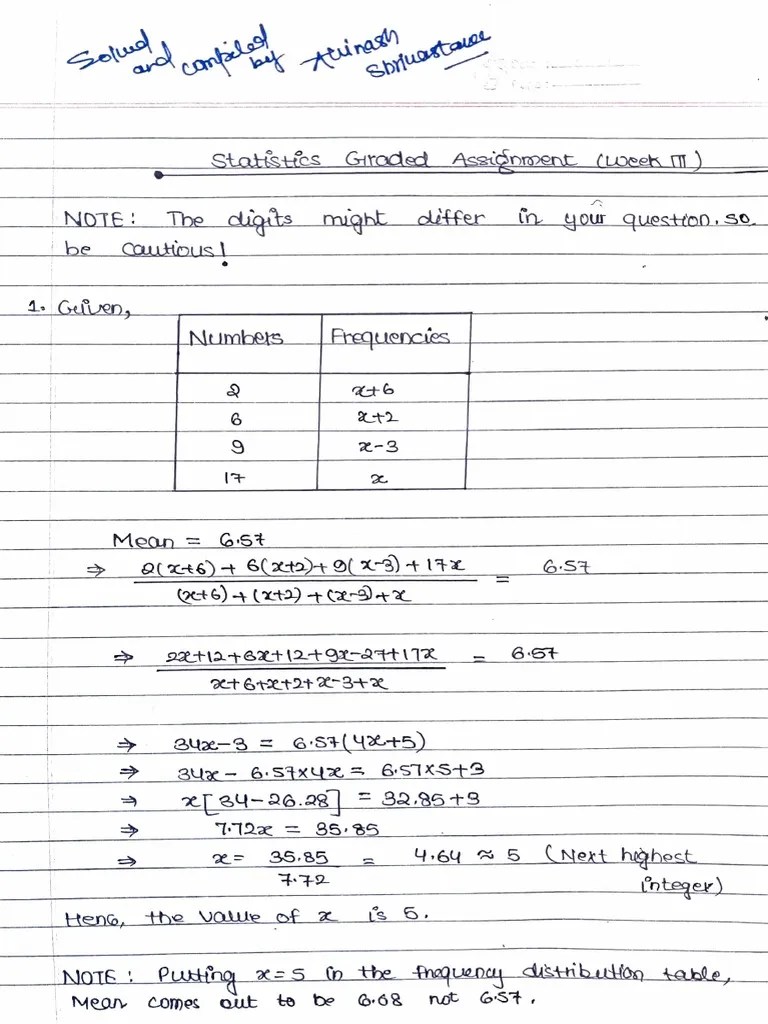 Solved and compiled by Avinash Shrivastava
Statistics Graded Assignment (Week III)
NOTE: The digits might differ in your question. so
be cautious!
1. Given,
Numbers Frequencies
2 x+6
6 x+2
9 x-3
17 x
Mean = 6.57
⇒ 2(x+6) + 6(x+2) + 9(x-3) + 17x / (x+6) + (x+2) + (x-3) + x = 6.57
⇒ 2x+12+6x+12+9x-27+17x / x+6+x+2+x-3+x = 6.57
⇒ 34x-3 = 6.57(4x+5)
⇒ 34x - 6.57×4x = 6.57×5+3
⇒ x[34-26.28] = 32.85+3
⇒ 7.72x = 35.85
⇒ x = 35.85 / 7.72 = 4.64 ≈ 5 (Next highest
integer)
Henc, the value of x is 5.
NOTE: Putting x=5 in the frequency distribution table,
Mean comes out to be 6.68 not 6.57.